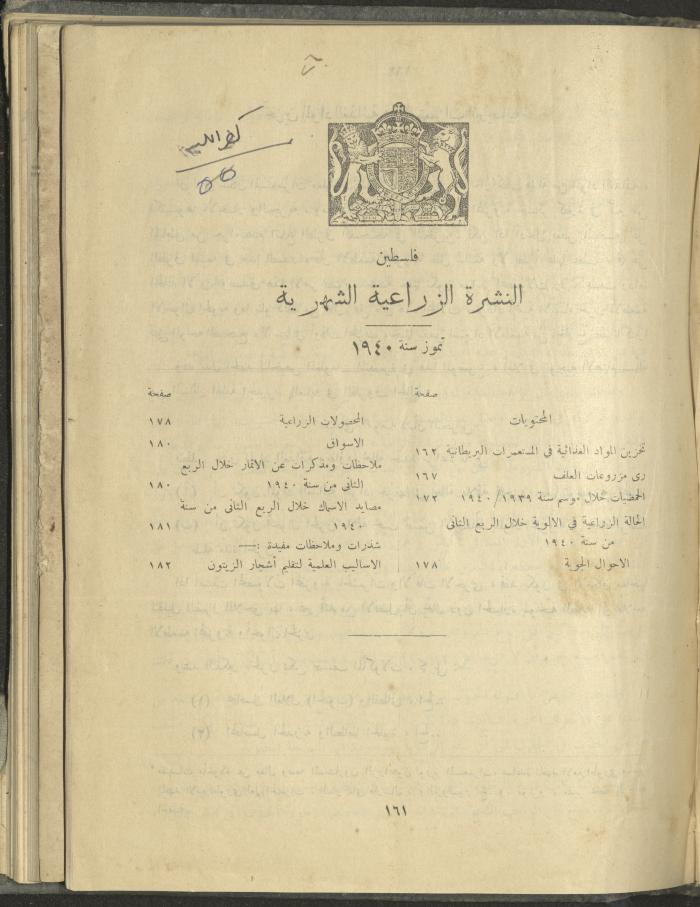 فلسطين
النشرة الزراعية الشهرية
تموز سنة ١٩٤٠
صفحة
المحتويات
تخزين المواد الغذائية في المستعمرات البريطانية ١٦٢
رى مزروعات العلف ١٦٧
الحمضيات خلال موسم سنة ١٩٣٩/١٩٤٠ ١٧٢
الحالة الزراعية في الالوية خلال الربع الثانى
من سنة ١٩٤٠
الاحوال الجوية ١٧٨
صفحة
المحصولات الزراعية ١٧٨
الاسواق ١٨٠
ملاحظات ومذكرات عن الاثمار خلال الربع
الثانى من سنة ١٩٤٠ ١٨٠
مصايد الاسماك خلال الربع الثانى من سنة
١٩٤٠ ١٨١
شذرات وملاحظات مفيدة :—
الاساليب العلمية لتقليم أشجار الزيتون ١٨٢
١٦١